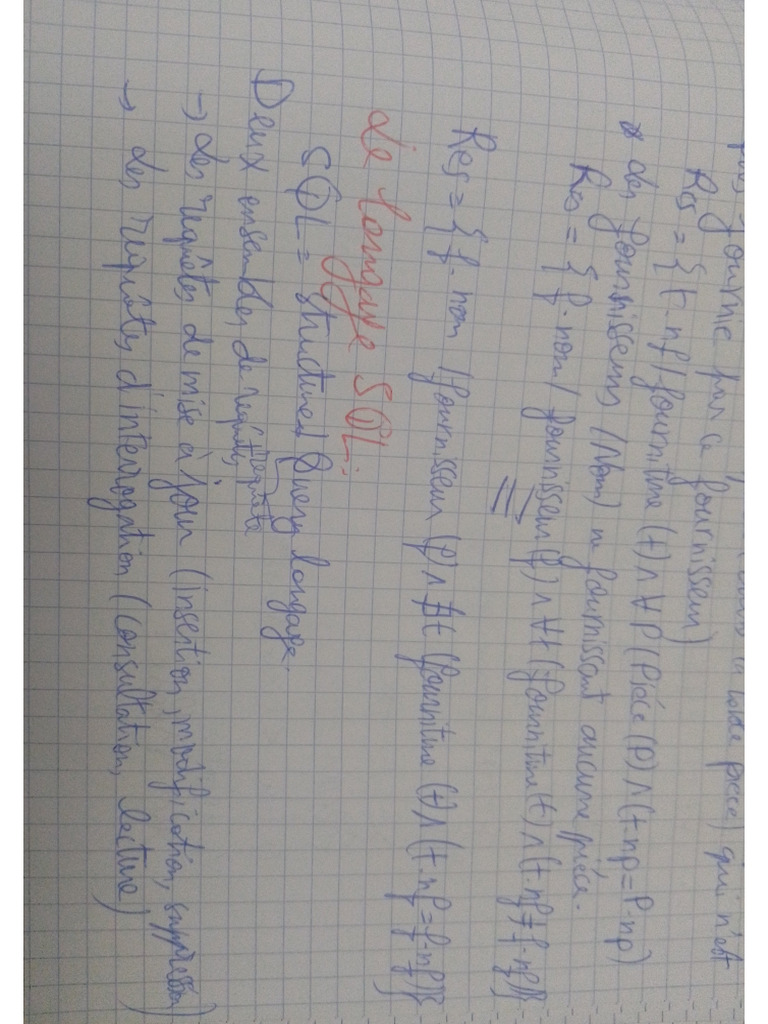 fournie par ce fournisseur)
Res = {t.nf / fourniture (t) ∧ ∀P (Pièce (P) ∧ (t.np = P.np)
* des fournisseurs (Nom) ne fournissant aucune pièce.
Res = {f.nom / fournisseur (f) ∧ ∀t (fourniture (t) ∧ (t.nf ≠ f.nf))}
Res = {f.nom / fournisseur (f) ∧ ∄t (fourniture (t) ∧ (t.nf = f.nf))}
Le langage SQL:
SQL = Structured Query langage.
requête
Deux ensembles de requêtes
→ des requêtes de mise à jour (insertion, modification, suppression)
→ des requêtes d'interrogation (consultation, lecture)